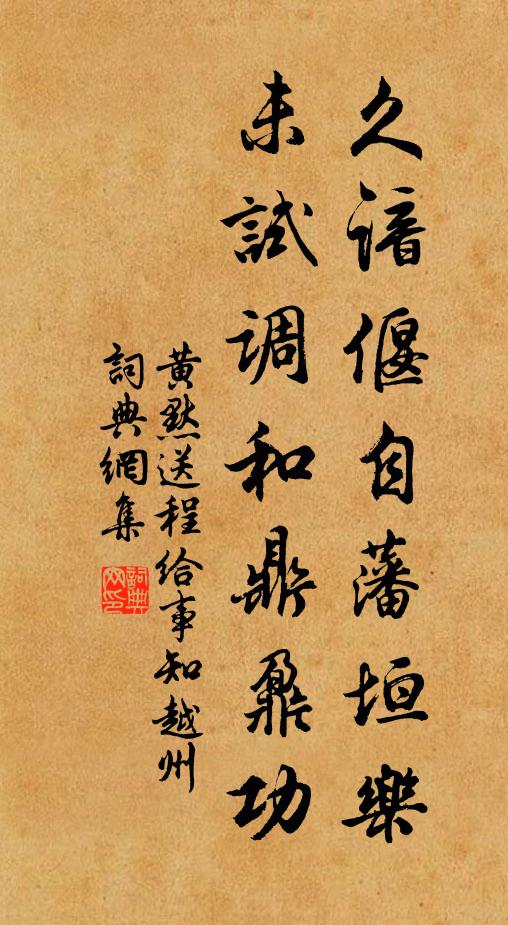 久諳偃自藩垣樂
未試调和鼎鼐功
黄默送程給事知越州
詞典網集
詞典网印